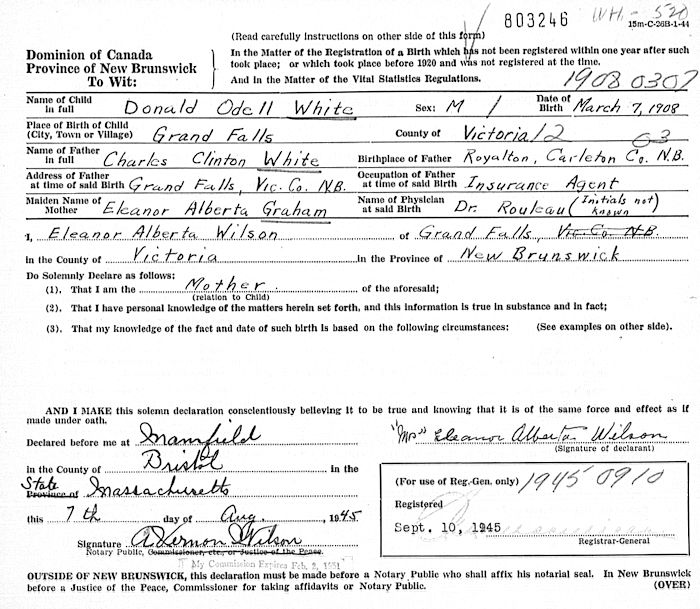 803246 WH - 520
15m-C-26B-1-44
(Read carefully instructions on other side of this form)
Dominion of Canada
Province of New Brunswick
To Wit:
In the Matter of the Registration of a Birth which has not been registered within one year after such
took place; or which took place before 1920 and was not registered at the time.
And in the Matter of the Vital Statistics Regulations.
1908 0307
Name of Child in full Donald Odell White Sex: M / Date of Birth March 7, 1908
Place of Birth of Child (City, Town or Village) Grand Falls County of Victoria/2 03
Name of Father in full Charles Clinton White Birthplace of Father Royalton, Carleton Co. N.B.
Address of Father at time of said Birth Grand Falls, Vic. Co. N.B. Occupation of Father at time of said Birth Insurance Agent
Maiden Name of Mother Eleanor Alberta Graham Name of Physician at said Birth Dr. Rouleau (Initials not known)
I, Eleanor Alberta Wilson of Grand Falls, Vic. Co. N.B.
in the County of Victoria in the Province of New Brunswick
Do Solemnly Declare as follows:
(1). That I am the Mother of the aforesaid;
(relation to Child)
(2). That I have personal knowledge of the matters herein set forth, and this information is true in substance and in fact;
(3). That my knowledge of the fact and date of such birth is based on the following circumstances: (See examples on other side).
AND I MAKE this solemn declaration conscientiously believing it to be true and knowing that it is of the same force and effect as if
made under oath.
Declared before me at Mansfield
"Mrs" Eleanor Alberta Wilson
(Signature of declarant)
in the County of Bristol in the
State Province of Massachusetts
this 7th day of Aug. , 1945
Signature A Vernon Wilson
Notary Public, Commissioner, etc., or Justice of the Peace.
My Commission Expires Feb. 2, 1951
(For use of Reg.-Gen. only) 1945 0910
Registered
Sept. 10, 1945
Registrar-General
OUTSIDE OF NEW BRUNSWICK, this declaration must be made before a Notary Public who shall affix his notarial seal. In New Brunswick
before a Justice of the Peace, Commissioner for taking affidavits or Notary Public. (OVER)